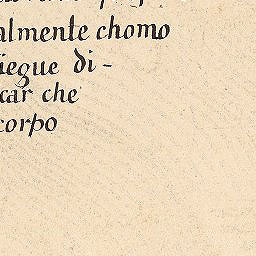 almente chomo
iegue di-
car che
corpo